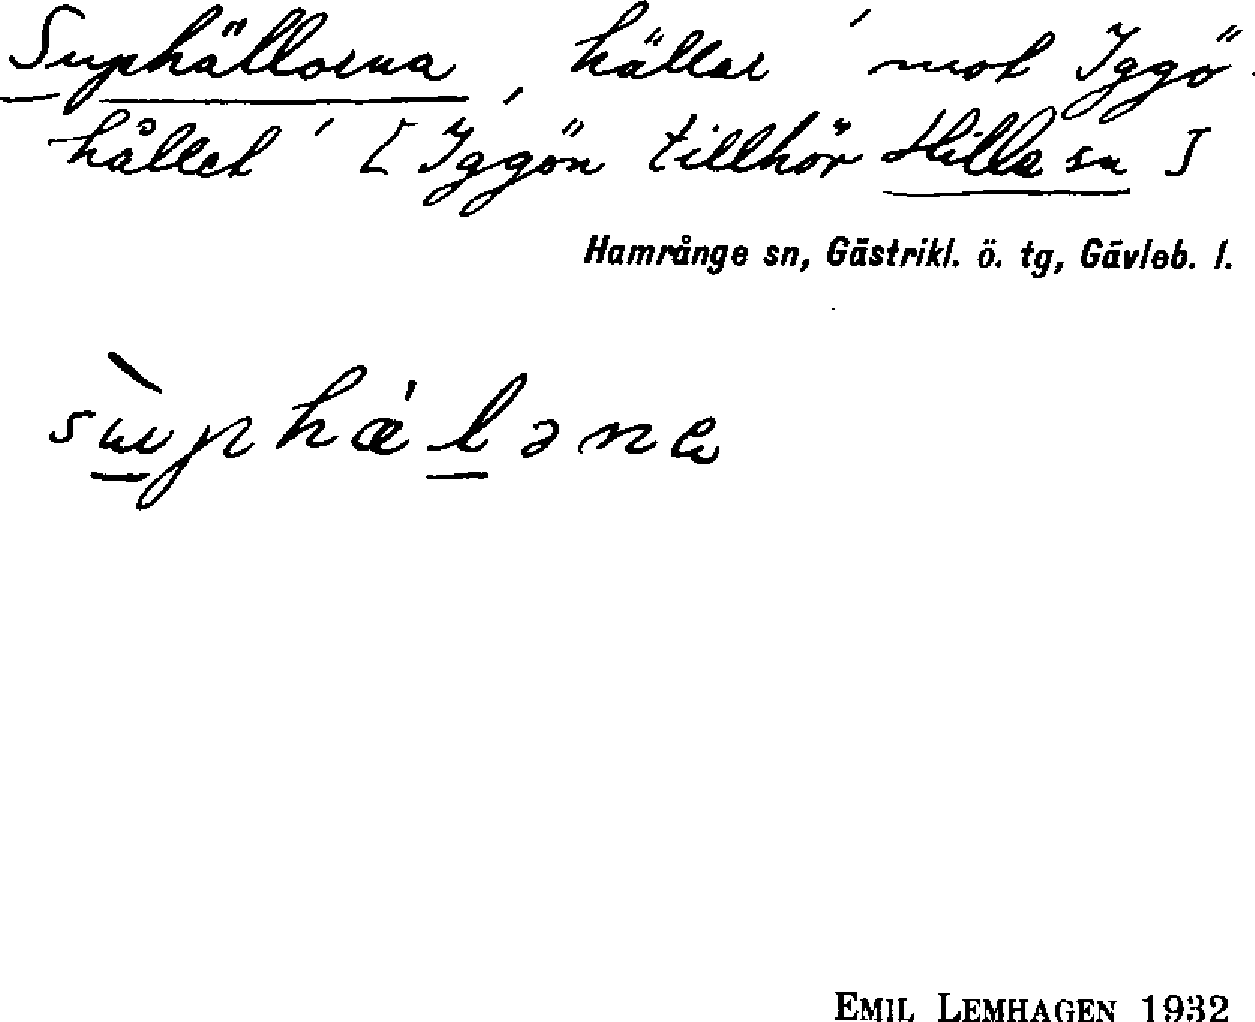 Suphällorna, hällar 'mot Iggö-
hållet' [Iggön tillhör Hille sn]
Hamrånge sn, Gästrikl. ö. tg, Gävleb. l.
sùphǽləna
EMIL LEMHAGEN 1932